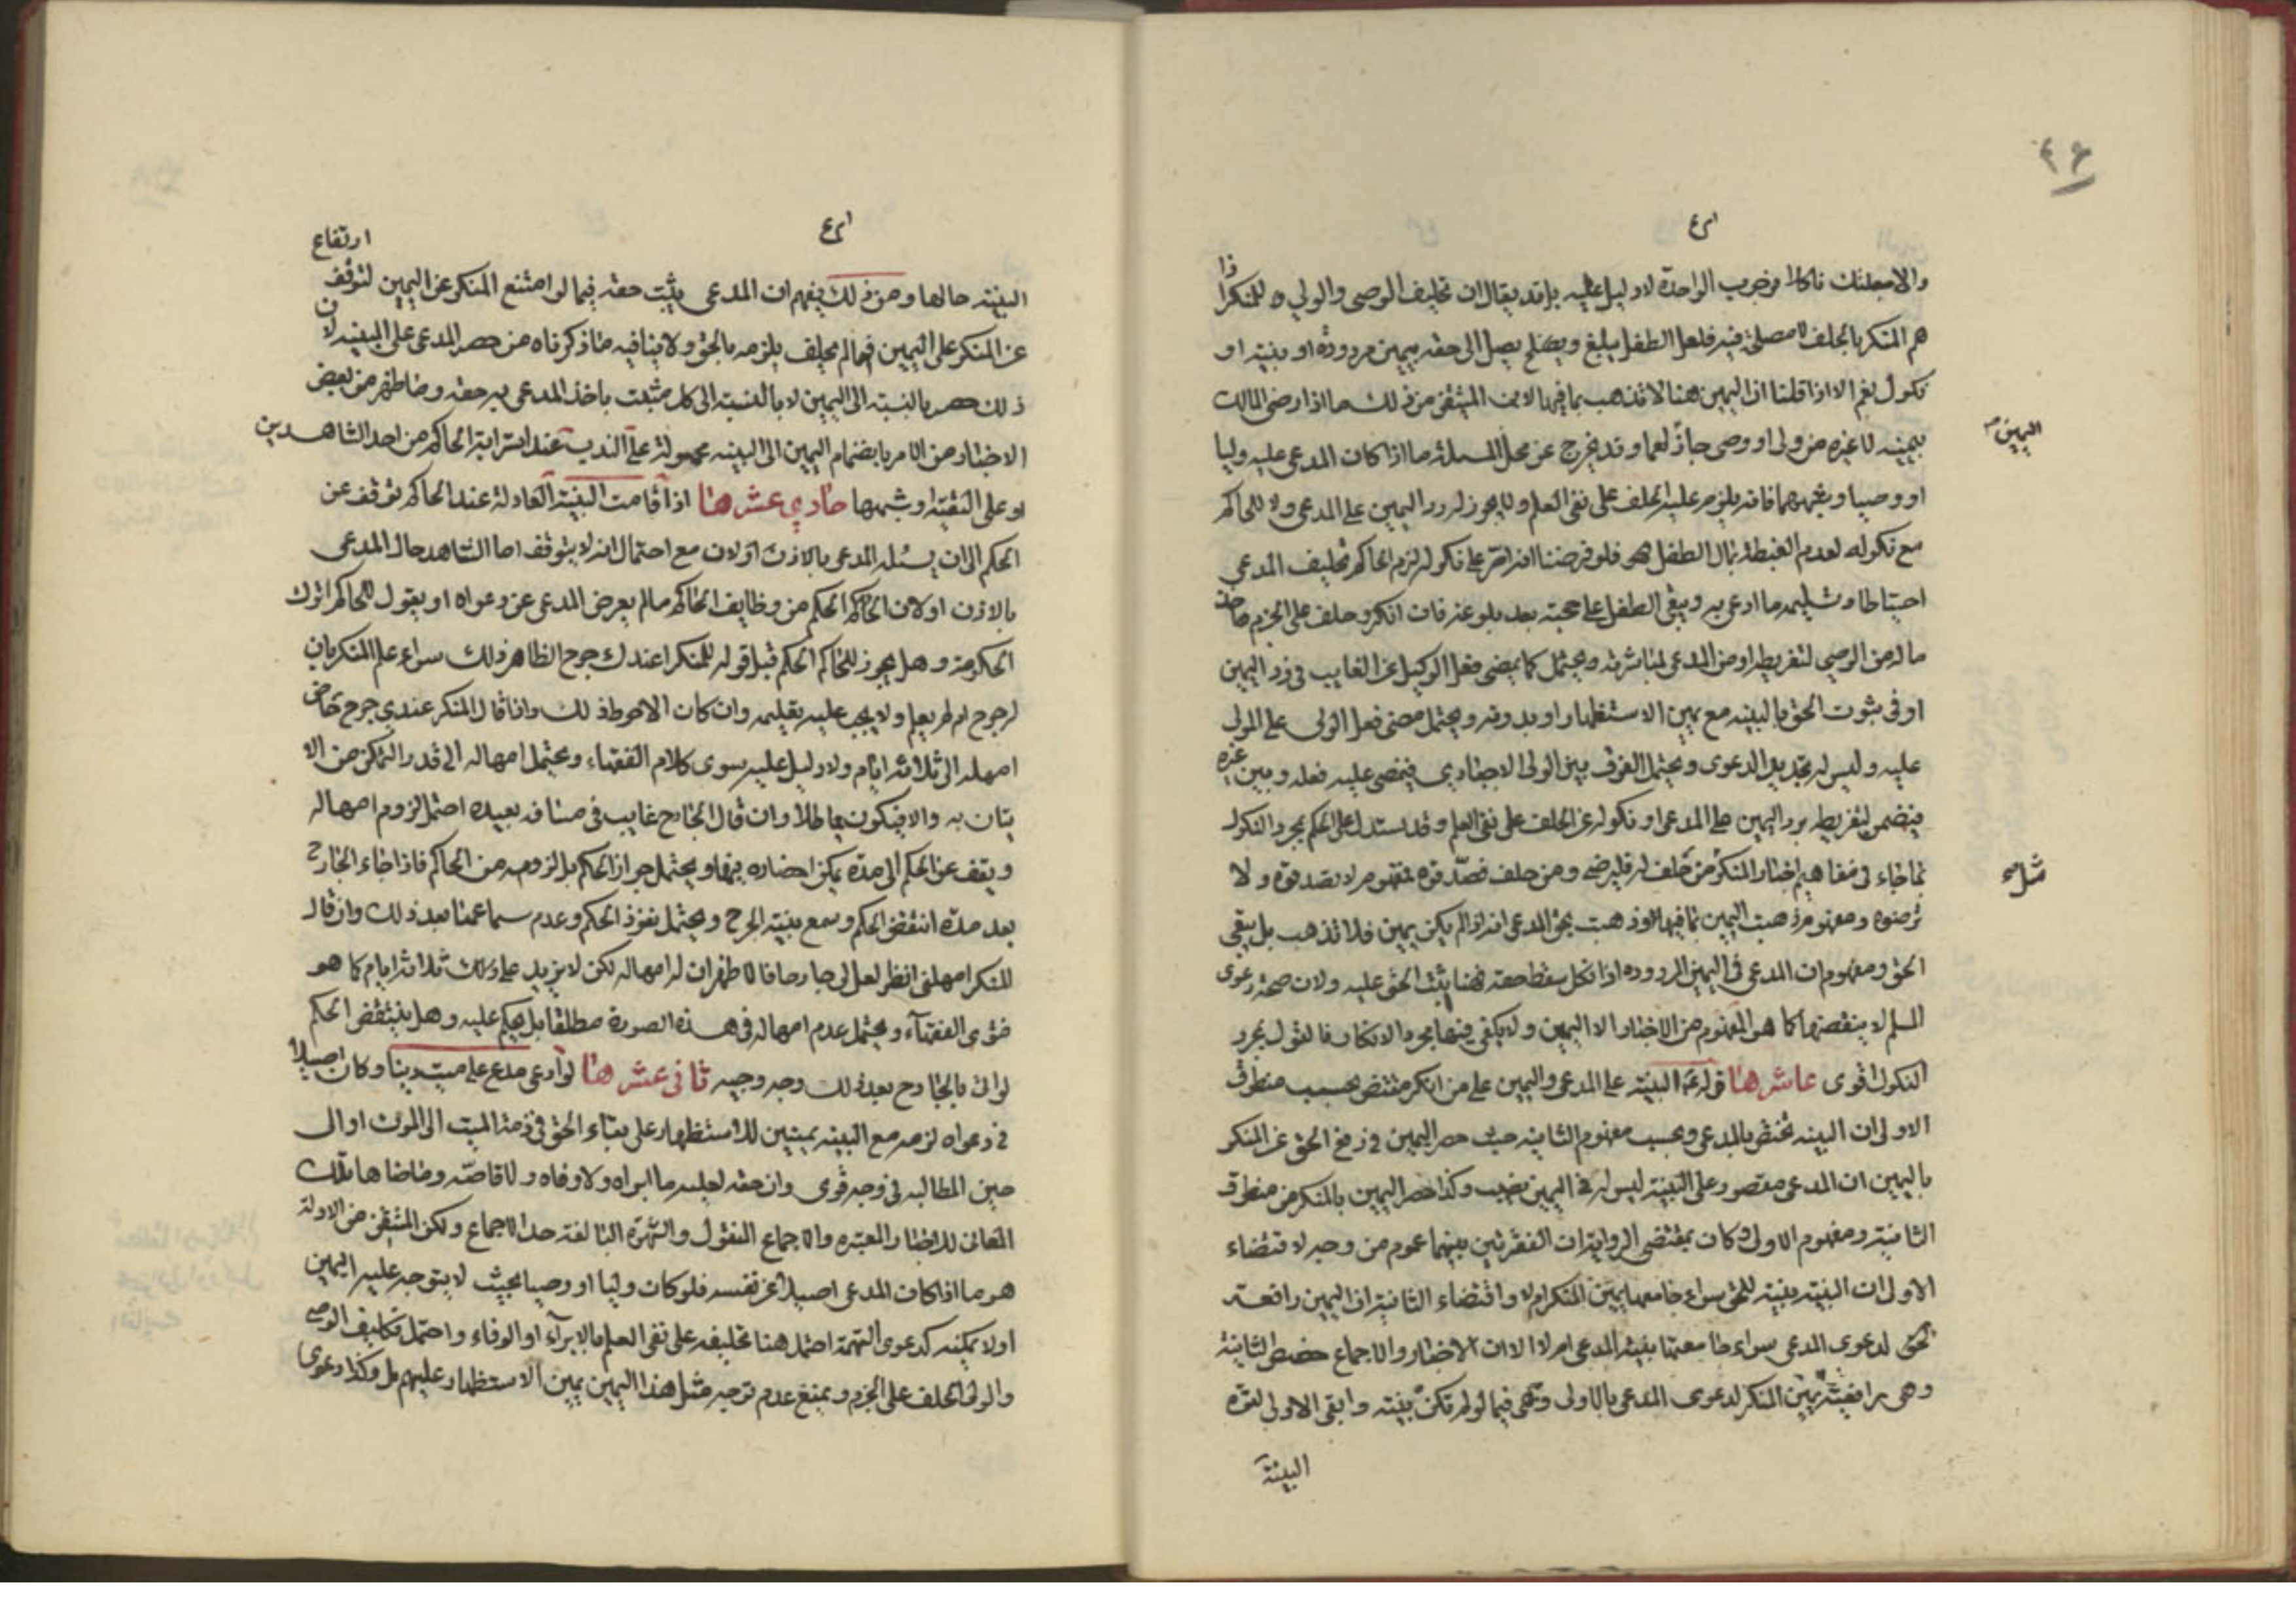 ٤٦
والا جعلتك ناكلا وجوب الواحدة لا دليل عليه بل قد يقال ان تحليف الوصي والولي للمنكر اذا
هم المنكر بالحلف لا مصلحة فيه فلعل الطفل يبلغ ويصلح يصل الى حقه بيمين مردودة او بينة او
نكول نعم الا اذا قلنا ان اليمين هنا لا تذهب بما فيها لان المتيقن من ذلك ما اذا رضى المالك
اليمين
بيمينه لا غيره من ولي او وصي جاز لهما وقد يخرج عن محل المسئلة ما اذا كان المدعى عليه وليا
او وصيا وشبههما فانه يلزم عليه الحلف على نفي العلم ولا يجوز له رد اليمين على المدعي ولا للحاكم
مع نكوله لعدم الغبطة بمال الطفل فلو فرضنا اصر على نكوله لزم الحاكم تحليف المدعي
احتياطا وتسليمه ما ادعى به ويبقى الطفل على حجته بعد بلوغه فان انكر وحلف على الجزم
ماله من الوصي لتفريطه او من المدعي لمباشرته ويحتمل كما يمضى فعل الوكيل عن الغايب في رد اليمين
او في ثبوت الحق بالبينه مع يمين الاستظهار او بدونه ويحتمل مضى فعل الولى على المولى
عليه وليس له تجديد الدعوى ويحتمل الفرق بين الولى الاجباري فيمضى عليه فعله وبين غيره
فيضمن لتفريطه برد اليمين على المدعي او نكوله عن الحلف على نفي العلم وقد يستدل على الحكم بمجرد النكول
مثل
بما جاء في مفاهيم اخبار المنكر من حلف له فليرض ومن حلف فصدقوه لمفهوم لا تصدقوه ولا
ترضوه ومفهوم ذهبت اليمين بما فيها او ذهبت بحق المدعي انه اذا لم يكن يمين فلا تذهب بل يبقى
الحق ومفهوم ان المدعي في اليمين المردوده اذا نكل سقط حقه فهنا يثبت الحق عليه ولان صحة دعوى
المسلم لا ينقضها كما هو المفهوم من الاخبار الا اليمين ولا يكفى فيها مجرد الانكار فالقول بمجرد
النكول اقوى عاشرها قوله البينه على المدعي واليمين على من انكر مقتض بحسب منطوق
الاولى ان البينه تختص بالمدعي وبحسب مفهوم الثانيه حيث حصر اليمين في رفع الحق عن المنكر
باليمين ان المدعي مقصور على البينة ليس له في اليمين نصيب وكذا حصر اليمين بالمنكر من منطوق
الثانية ومفهوم الاولى وكان بمقتضى الرواية ان الفقرتين بينهما عموم من وجه لاقتضاء
الاولى ان البينة مبينة للحق سواء جامعها يمين المنكر ام لا واقتضاء الثانية ان اليمين رافعة
لحق لدعوى المدعي سواء جامعتها بينة المدعي ام لا الا ان الاخبار والاجماع خصص الثانية
وهي رافعية يمين المنكر لدعوى المدعي بالاولى وهي فيما لو لم تكن بينة وابقى الاولى لقوة
البينة
ارتفاع
البينة حالها ومن ذلك يفهم ان المدعي يثبت حقه فيما لو امتنع المنكر عن اليمين لتوقف
عن المنكر على اليمين فما لم يحلف يلزمه بالحق ولا ينافيه ما ذكرناه من حصر المدعي على البينه لان
ذلك حصر بالنسبة الى اليمين لا بالنسبة الى كل مثبت ياخذ المدعي به حقه وما ظهر من بعض
الاخبار من الامر بانضمام اليمين الى البينه محمولة على الندب عند استرابة الحاكم من احد الشاهدين
او على التقية وشبهها حادي عشرها اذا اقامت البينة العادلة عند الحاكم توقف عن
الحكم الى ان يسئله المدعي بالاذن اولان مع احتمال انه لا يتوقف اما الشاهد حال المدعي
بالاذن او لان الحكم من وظايف الحاكم ما لم يعرض المدعي عن دعواه او يقول للحاكم اترك
الحكومة وهل يجوز للحاكم الحكم قبل قوله للمنكر اعندك جرح الظاهر ذلك سواء علم المنكر بان
له جرح ام لم يعلم ولا يجب عليه تعليمه وان كان الاحوط ذلك واذا قال المنكر عندي جرح
امهله الى ثلاثة ايام ولا دليل عليه سوى كلام الفقهاء ويحتمل امهاله الى قدر التمكن من الا
تيان به والا فيكون مماطلا وان قال الجارح غايب في مسافه بعيده احتمل لزوم امهاله
ويقف عن الحكم الى مدة يمكن احضاره فيها ويحتمل جواز الحكم بل لزومه من الحاكم فاذا جاء الجارح
بعد مدة انتقض الحكم وسمع بينة الجرح ويحتمل نفوذ الحكم وعدم سماعهنا بعد ذلك وان قال
المنكر امهلني انظر لعل لي جارحا فالاظهر ان له امهاله لكن لا يزيد على ذلك ثلاثة ايام كما هو
فتوى الفقهاء ويحتمل عدم امهاله في هذه الصورة مطلقا بل يحكم عليه وهل ينتقض الحكم
لو اتى بالجارح بعد ذلك وجه وجيه ثاني عشرها لو ادعى مدع على ميت دينا وكان اصيلا
في دعواه لزمه مع البينه يمينين للاستظهار على بقاء الحق في ذمة الميت الى الموت او الى
حين المطالبه في وجه قوى وان حقه لعليه ما ابراه ولا وفاه ولا قاصه وما ضاهاتلك
المعانى للاخبار المعتبره والاجماع المنقول والشهرة البالغة حد الاجماع ولكن المتيقن من الادلة
هو ما اذا كان المدعي اصيلا عن نفسه فلو كان وليا او وصيا بحيث لا يتوجه عليه اليمين
او لا يمكنه كدعوى التهمة احتمل هنا تحليفه على نفي العلم بالابراء او الوفاء واحتمل تكليف الوصي
والولى الحلف على الجزم ويمنع عدم توجه مثل هذا اليمين يمين الاستظهار عليهم بل وكذا دعوى